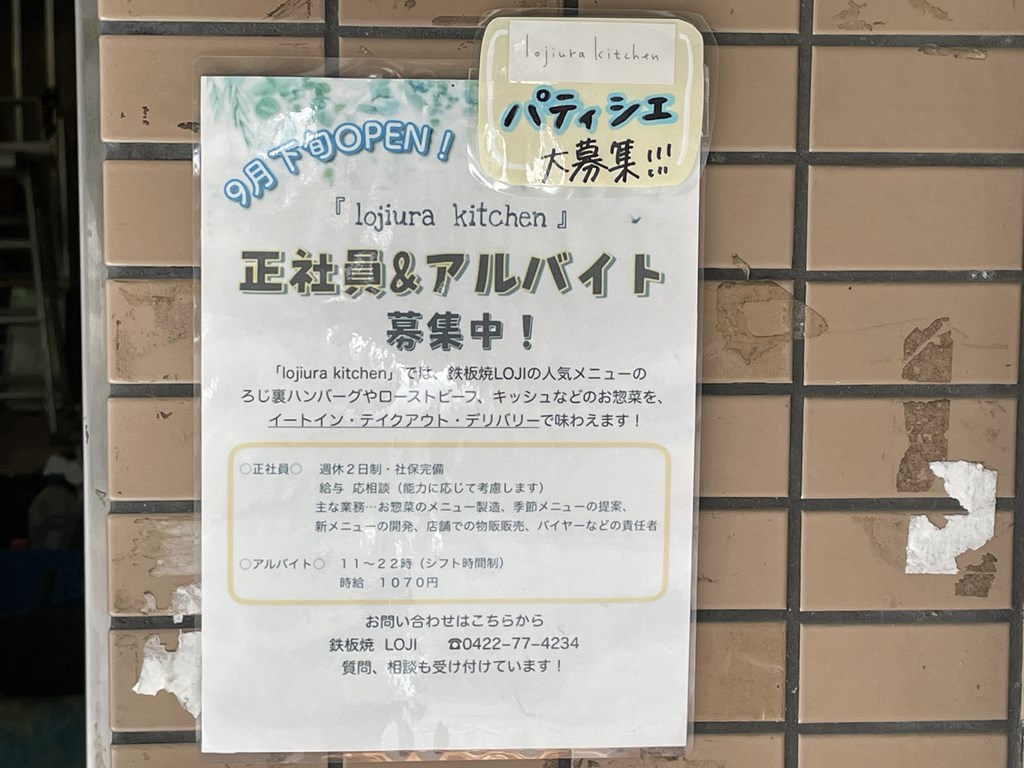 lojiura kitchen
パティシエ
大募集!!!
9月下旬OPEN！
『 lojiura kitchen 』
正社員&アルバイト
募集中！
「lojiura kitchen」では、鉄板焼LOJIの人気メニューの
ろじ裏ハンバーグやローストビーフ、キッシュなどのお惣菜を、
イートイン・テイクアウト・デリバリーで味わえます！
○正社員○ 週休２日制・社保完備
給与 応相談（能力に応じて考慮します）
主な業務…お惣菜のメニュー製造、季節メニューの提案、
新メニューの開発、店舗での物販販売、バイヤーなどの責任者
○アルバイト○ １１〜２２時（シフト時間制）
時給 １０７０円
お問い合わせはこちらから
鉄板焼 LOJI ☎0422−77−4234
質問、相談も受け付けています！